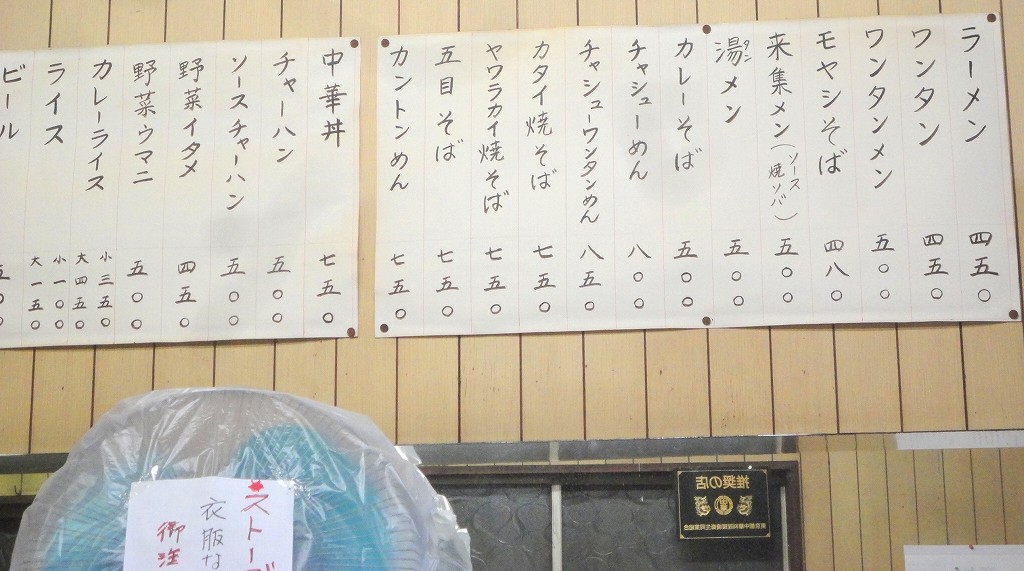 ラーメン 四五〇
ワンタン 四五〇
ワンタンメン 五〇〇
モヤシそば 四八〇
来集メン(ソース焼ソバ) 五〇〇
湯メン タン 五〇〇
カレーそば 五〇〇
チャシューめん 八〇〇
チャシューワンタンめん 八五〇
カタイ焼そば 七五〇
ヤワラカイ焼そば 七五〇
五目そば 七五〇
カントンめん 七五〇
中華丼 七五〇
チャーハン 五〇〇
ソースチャーハン 五〇〇
野菜イタメ 四五〇
野菜ウマニ 五〇〇
カレーライス 小三五〇 大四五〇
ライス 小一〇〇 大一五〇
ビール 五〇〇
ストーブ
衣服な
御注
推奨の店